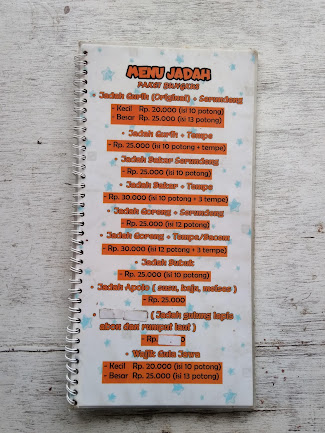 MENU JADAH
PAKET BUNGKUS
• Jadah Gurih (Original) + Serundeng
- Kecil Rp. 20.000 (isi 10 potong)
- Besar Rp. 25.000 (isi 13 potong)
• Jadah Gurih + Tempe
- Rp. 25.000 (isi 10 potong + tempe)
• Jadah Bakar Serundeng
- Rp. 25.000 (isi 10 potong)
• Jadah Bakar + Tempe
- Rp. 30.000 (isi 10 potong + 3 tempe)
• Jadah Goreng + Serundeng
- Rp. 25.000 (isi 12 potong)
• Jadah Goreng + Tempe/Bacem
- Rp. 30.000 (isi 12 potong + 3 tempe)
• Jadah Bubuk
- Rp. 25.000 (isi 10 potong)
• Jadah Apolo ( susu, keju, meises )
- Rp. 25.000
• ( Jadah gulung lapis
abon dan rumput laut )
- Rp. 0
• Wajik Gula Jawa
- Kecil Rp. 20.000 (isi 10 potong)
- Besar Rp. 25.000 (isi 13 potong)